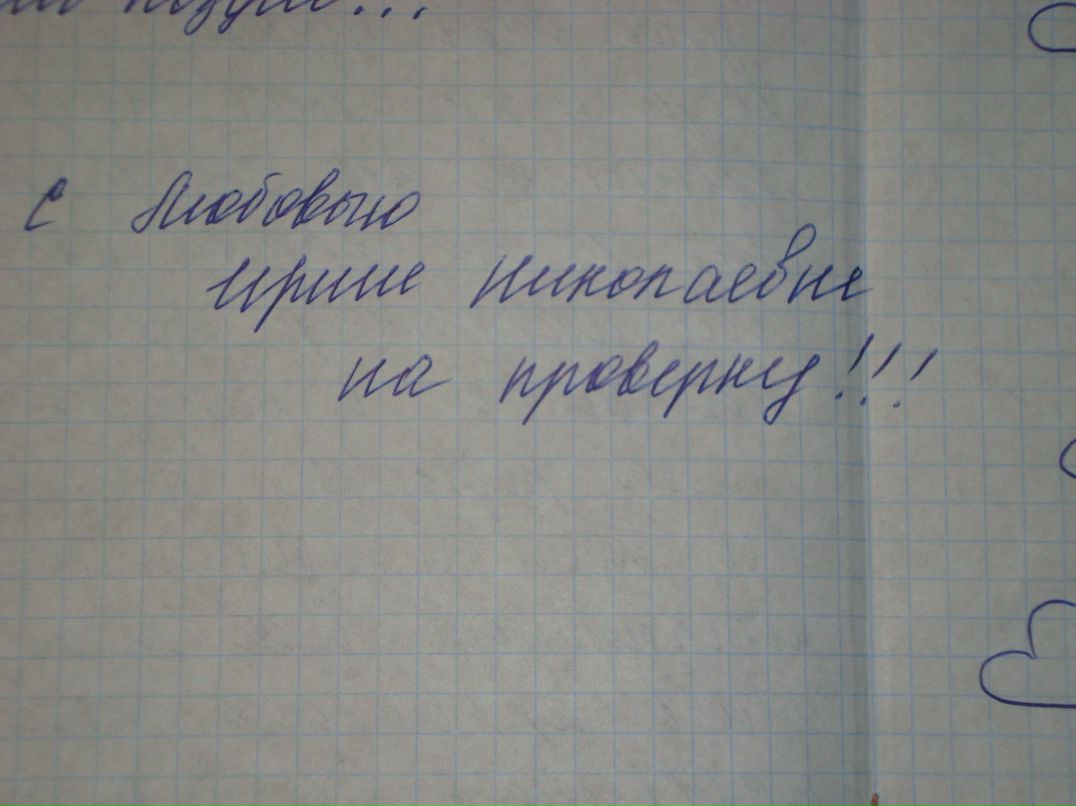 с Любовью
Ирине Николаевне
на проверку!!!